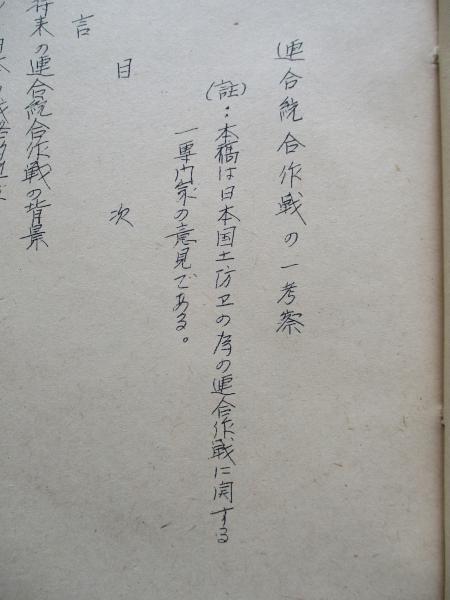 連合統合作戦の一考察
(註)：本稿は日本国土防卫の為の連合作戦に関する
一専门家の意見である。
目次
言
将来の連合統合作戦の背景